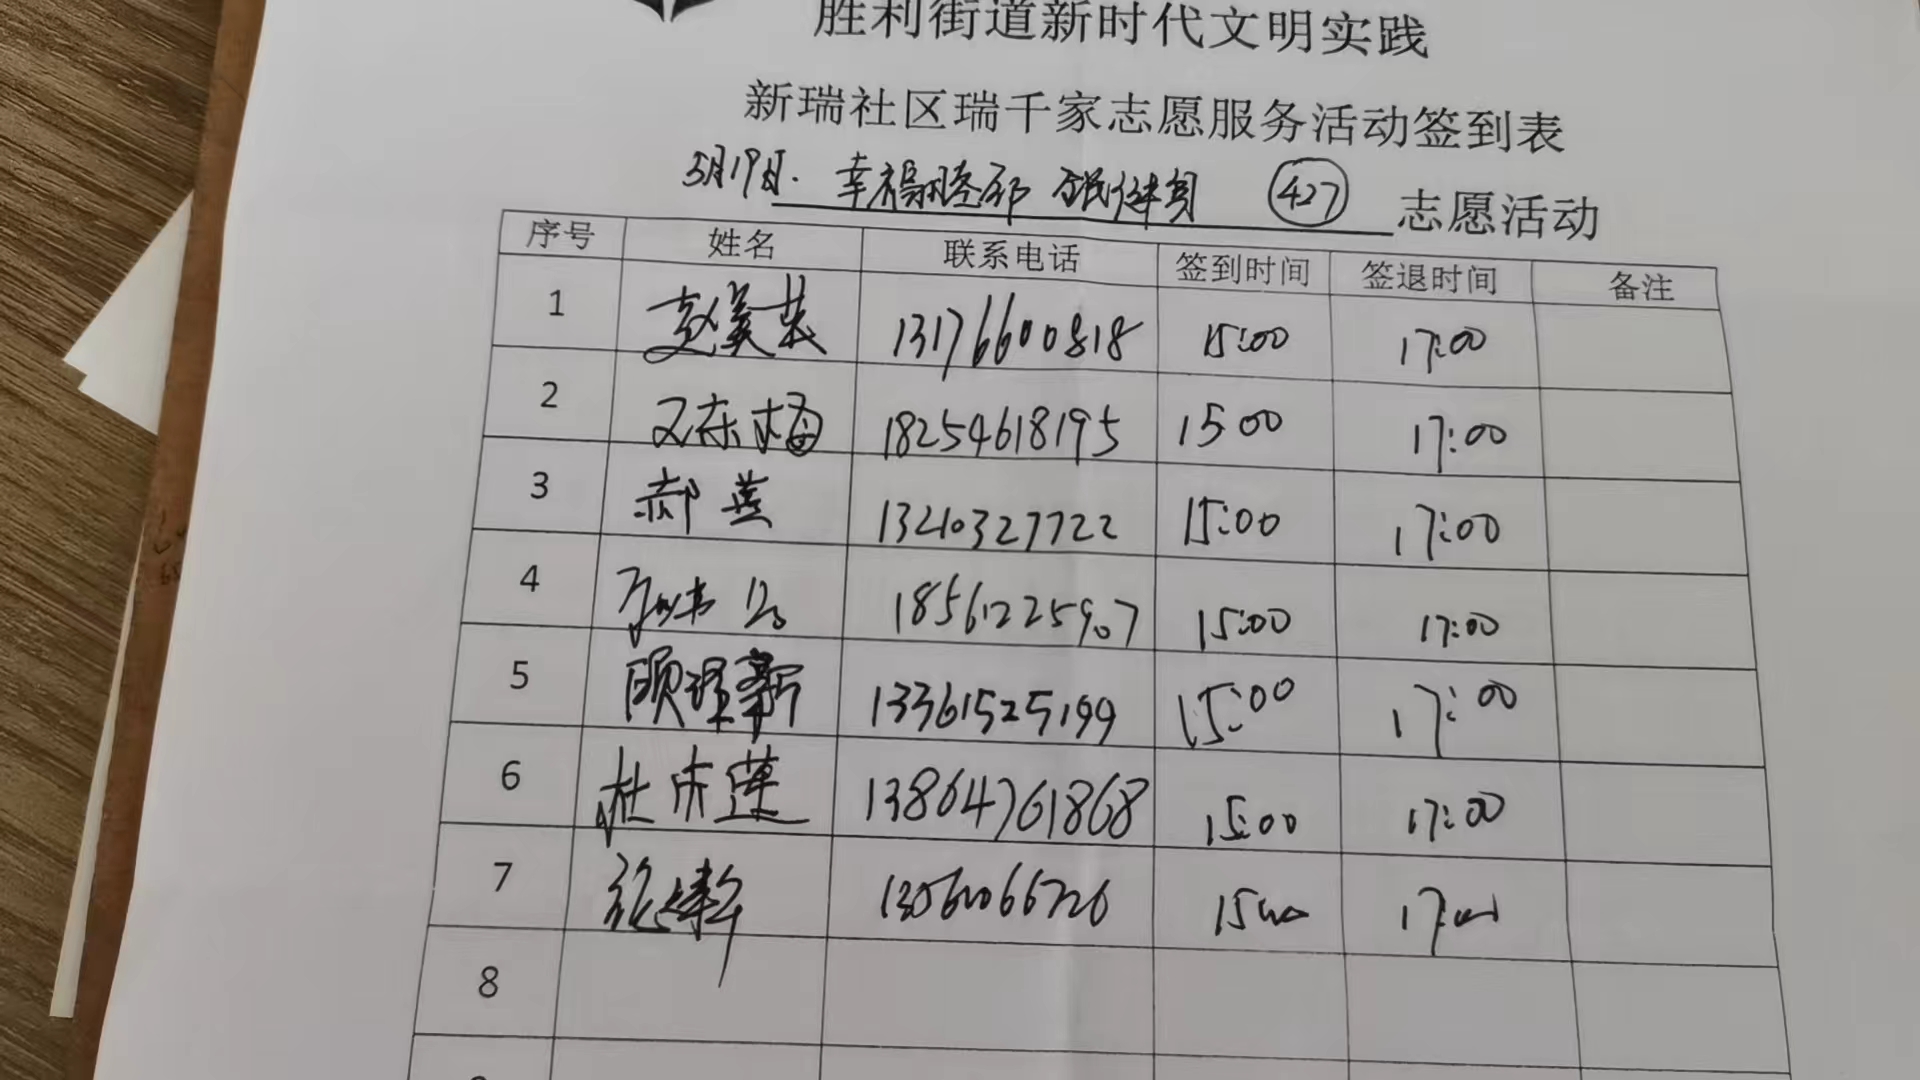 胜利街道新时代文明实践
新瑞社区瑞千家志愿服务活动签到表
5月19日. 幸福睦邻 全民健身 427 志愿活动
序号 姓名 联系电话 签到时间 签退时间 备注
1 赵美芸 13176600818 15:00 17:00
2 文东梅 18254618195 15 00 17:00
3 郝燕 13210327722 15:00 17:00
4 18561225907 15:00 17:00
5 顾理新 13361525199 15:00 17:00
6 杜庆莲 13864761868 15:00 17:00
7 张建华 15:00 17:00
8